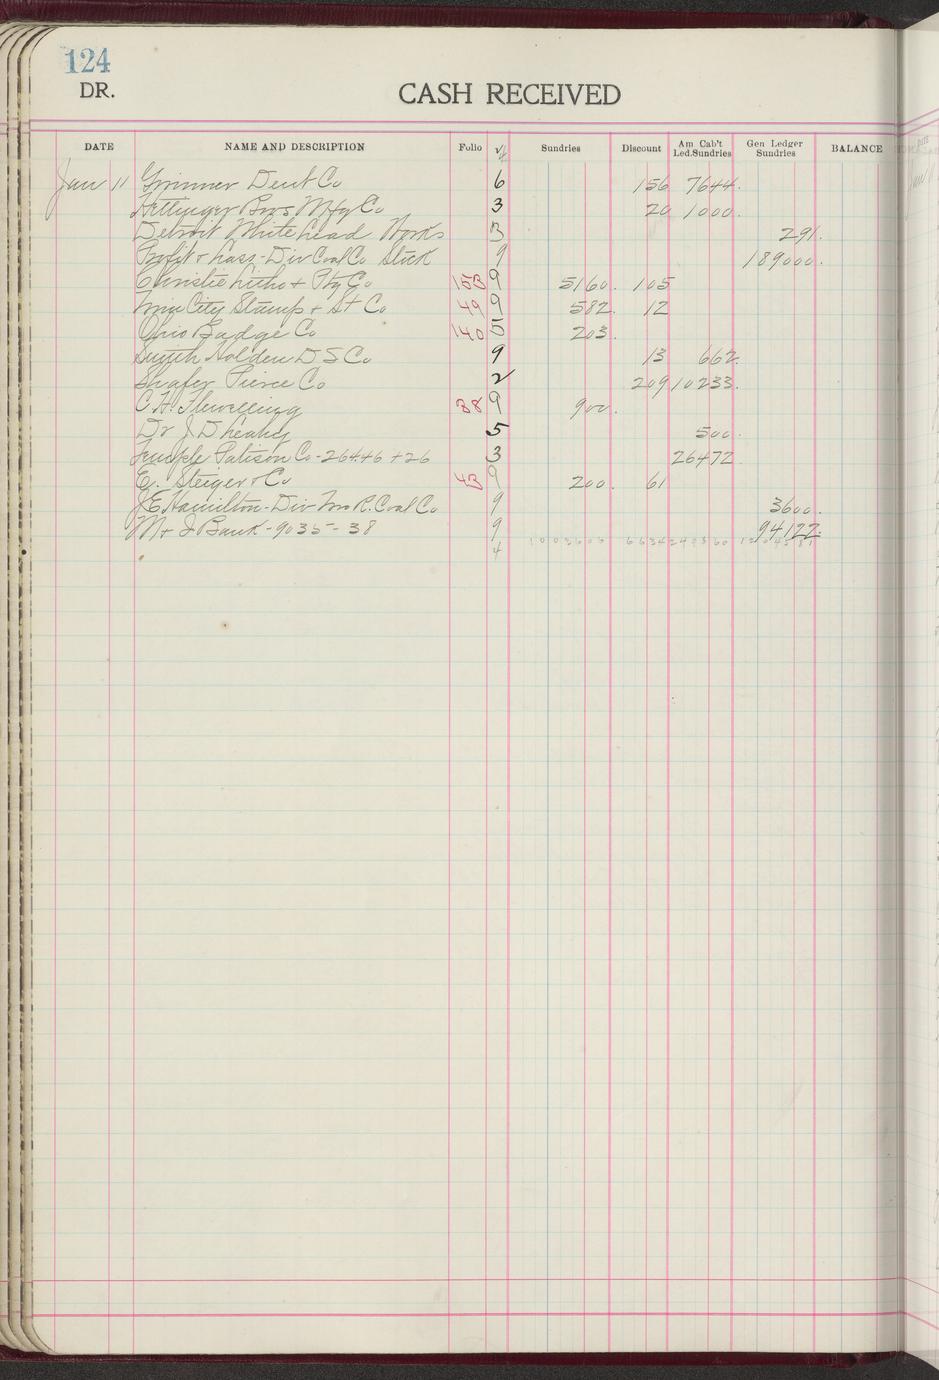 124
DR.
CASH RECEIVED
DATE NAME AND DESCRIPTION Folio Sundries Discount Am Cab't Led.Sundries Gen Ledger Sundries BALANCE
Jan 11 Dent Co 6 156 7644.
Hettinger Bros Mfg Co 3 20 1000.
Detroit White Lead Works 3 291.
Profit & Loss - Div Coal Co Stock 9 189000.
Christie Litho & Ptg Co 153 9 5160. 105
Twin City Stamp & St Co 49 9 582. 12
Ohio Badge Co 140 5 203.
Smith Holden D S Co 9 13 662.
Shafer Pierce Co 2 209 10233.
C.H. Flewelling 38 9 900.
Dr J D Leahy 5 500.
Temple Patison Co - 264.46 + 26 3 26472
E. Steiger & Co 43 9 200. 61
J E Hamilton - Div R. Coal Co 9 3600.
M + I Bank - 9035 - 38 9 94122.
4